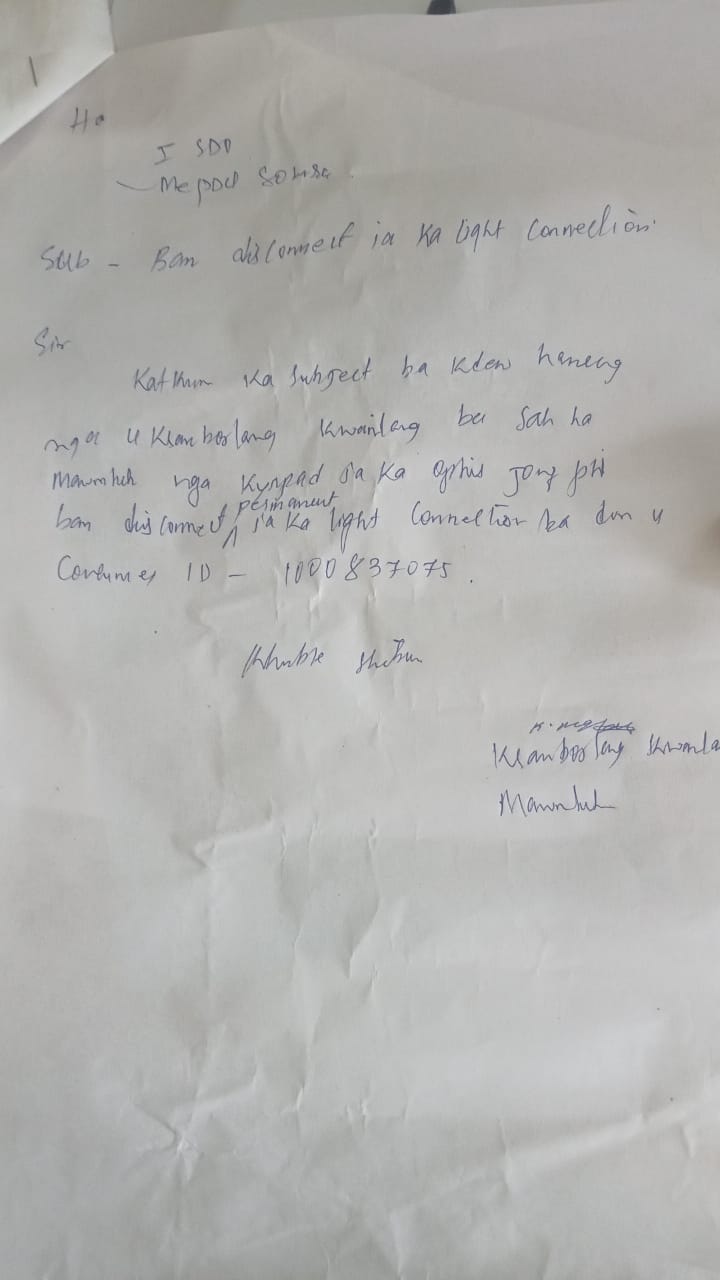 Ha
I SDO
Mepdcl Sohra.
Sub - Ban disconnect ia Ka light Connection.
Sir
Katkum Ka Subject ba Kdew haneng
nga u Klanborlang Kwailang ba Sah ha
Mawmluh nga Kyrpad ia Ka ophis jong phi
ban disconnect permanent ia Ka light Connection ba don u
Consumer ID - 1000837075.
Khublei Shibun
Klanborlang
Mawmluh